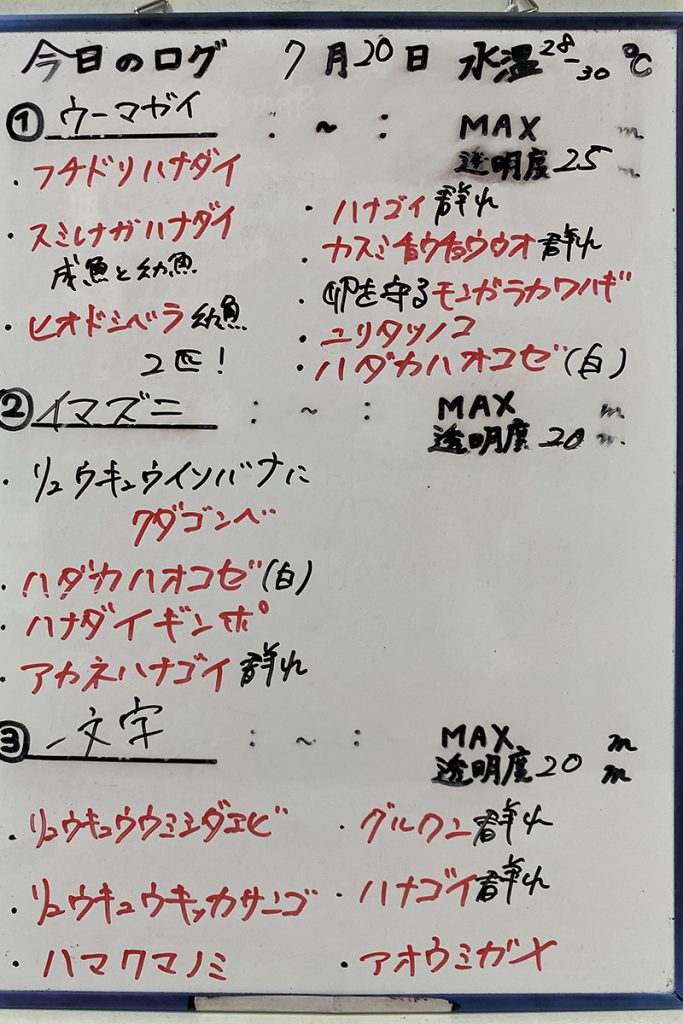 今日のログ 7月20日 水温28-30℃
① ウーマガイ : ~ : MAX m
透明度 25 m
・フチドリハナダイ
・スミレナガハナダイ
成魚と幼魚
・ヒオドシベラ 幼魚
2匹!
・ハナゴイ 群れ
・カスミチョウチョウウオ 群れ
・卵を守るモンガラカワハギ
・ユリタツノコ
・ハダカハオコゼ(白)
② イマズニ : ~ : MAX m
透明度 20 m
・リュウキュウイソバナに
クダゴンベ
・ハダカハオコゼ(白)
・ハナダイギンポ
・アカネハナゴイ 群れ
③ 一文字 : ~ : MAX m
透明度 20 m
・リュウキュウウミシダエビ
・リュウキュウキッカサンゴ
・ハマクマノミ
・グルクン 群れ
・ハナゴイ 群れ
・アオウミガメ